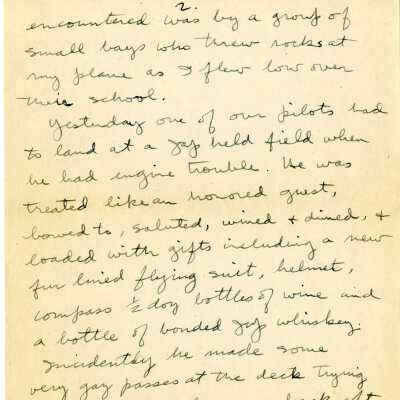 2.
encountered was by a group of
small boys who threw rocks at
my plane as I flew low over
their school.
Yesterday one of our pilots had
to land at a Jap held field when
he had engine trouble. He was
treated like an honored guest,
bowed to, saluted, wined & dined, &
loaded with gifts including a new
fur lined flying suit, helmet,
compass ½ doz bottles of wine and
a bottle of bonded Jap whiskey.
Incidently he made some
very gay passes at the deck trying